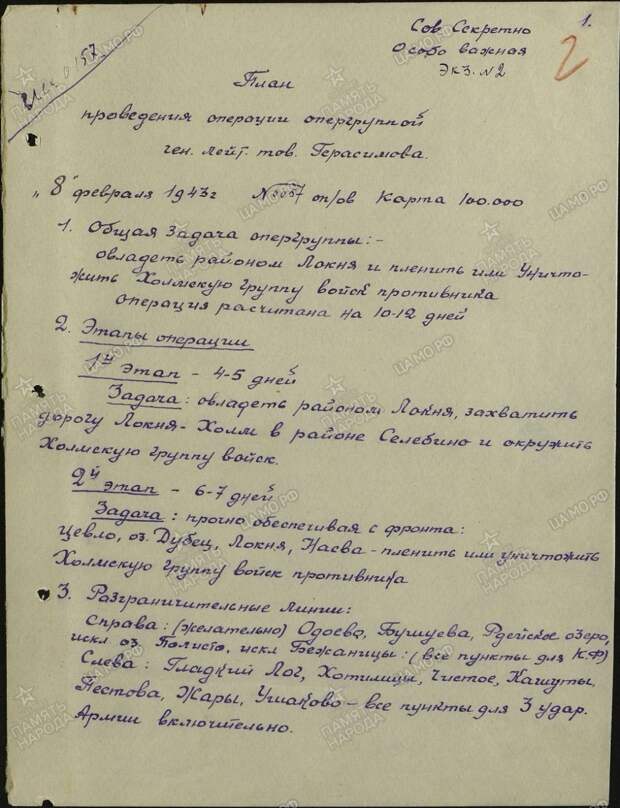 1.
Сов. Секретно
Особо важная
Экз. №2
2
План
проведения операции опергруппой
ген. лейт. тов. Герасимова.
„8" февраля 1943г № 0057 оп/ов Карта 100.000
1. Общая Задача опергруппы:-
овладеть районом Локня и пленить или Уничто-
жить Холмскую группу войск противника
Операция расчитана на 10-12 дней
2. Этапы операции
1й этап - 4-5 дней
Задача: овладеть районом Локня, захватить
дорогу Локня - Холм в районе Селебино и окружить
Холмскую группу войск.
2й этап - 6-7 дней
Задача: прочно обеспечивая с фронта:
Цевло, оз. Дубец, Локня, Насва - пленить или уничтожить
Холмскую группу войск противника
3. Разграничительные линии:
Справа: (желательно) Одоево, Бушуева, Рдейское озеро,
искл оз. Полисто, искл Бежаницы: (все пункты для К.Ф)
Слева: Гладкий Лог, Хотилицы, Чистое, Качуты,
Пестова, Жары, Ушаково - все пункты для 3 удар.
Армии включительно.
ПАМЯТЬ НАРОДА
ЦАМО.РФ